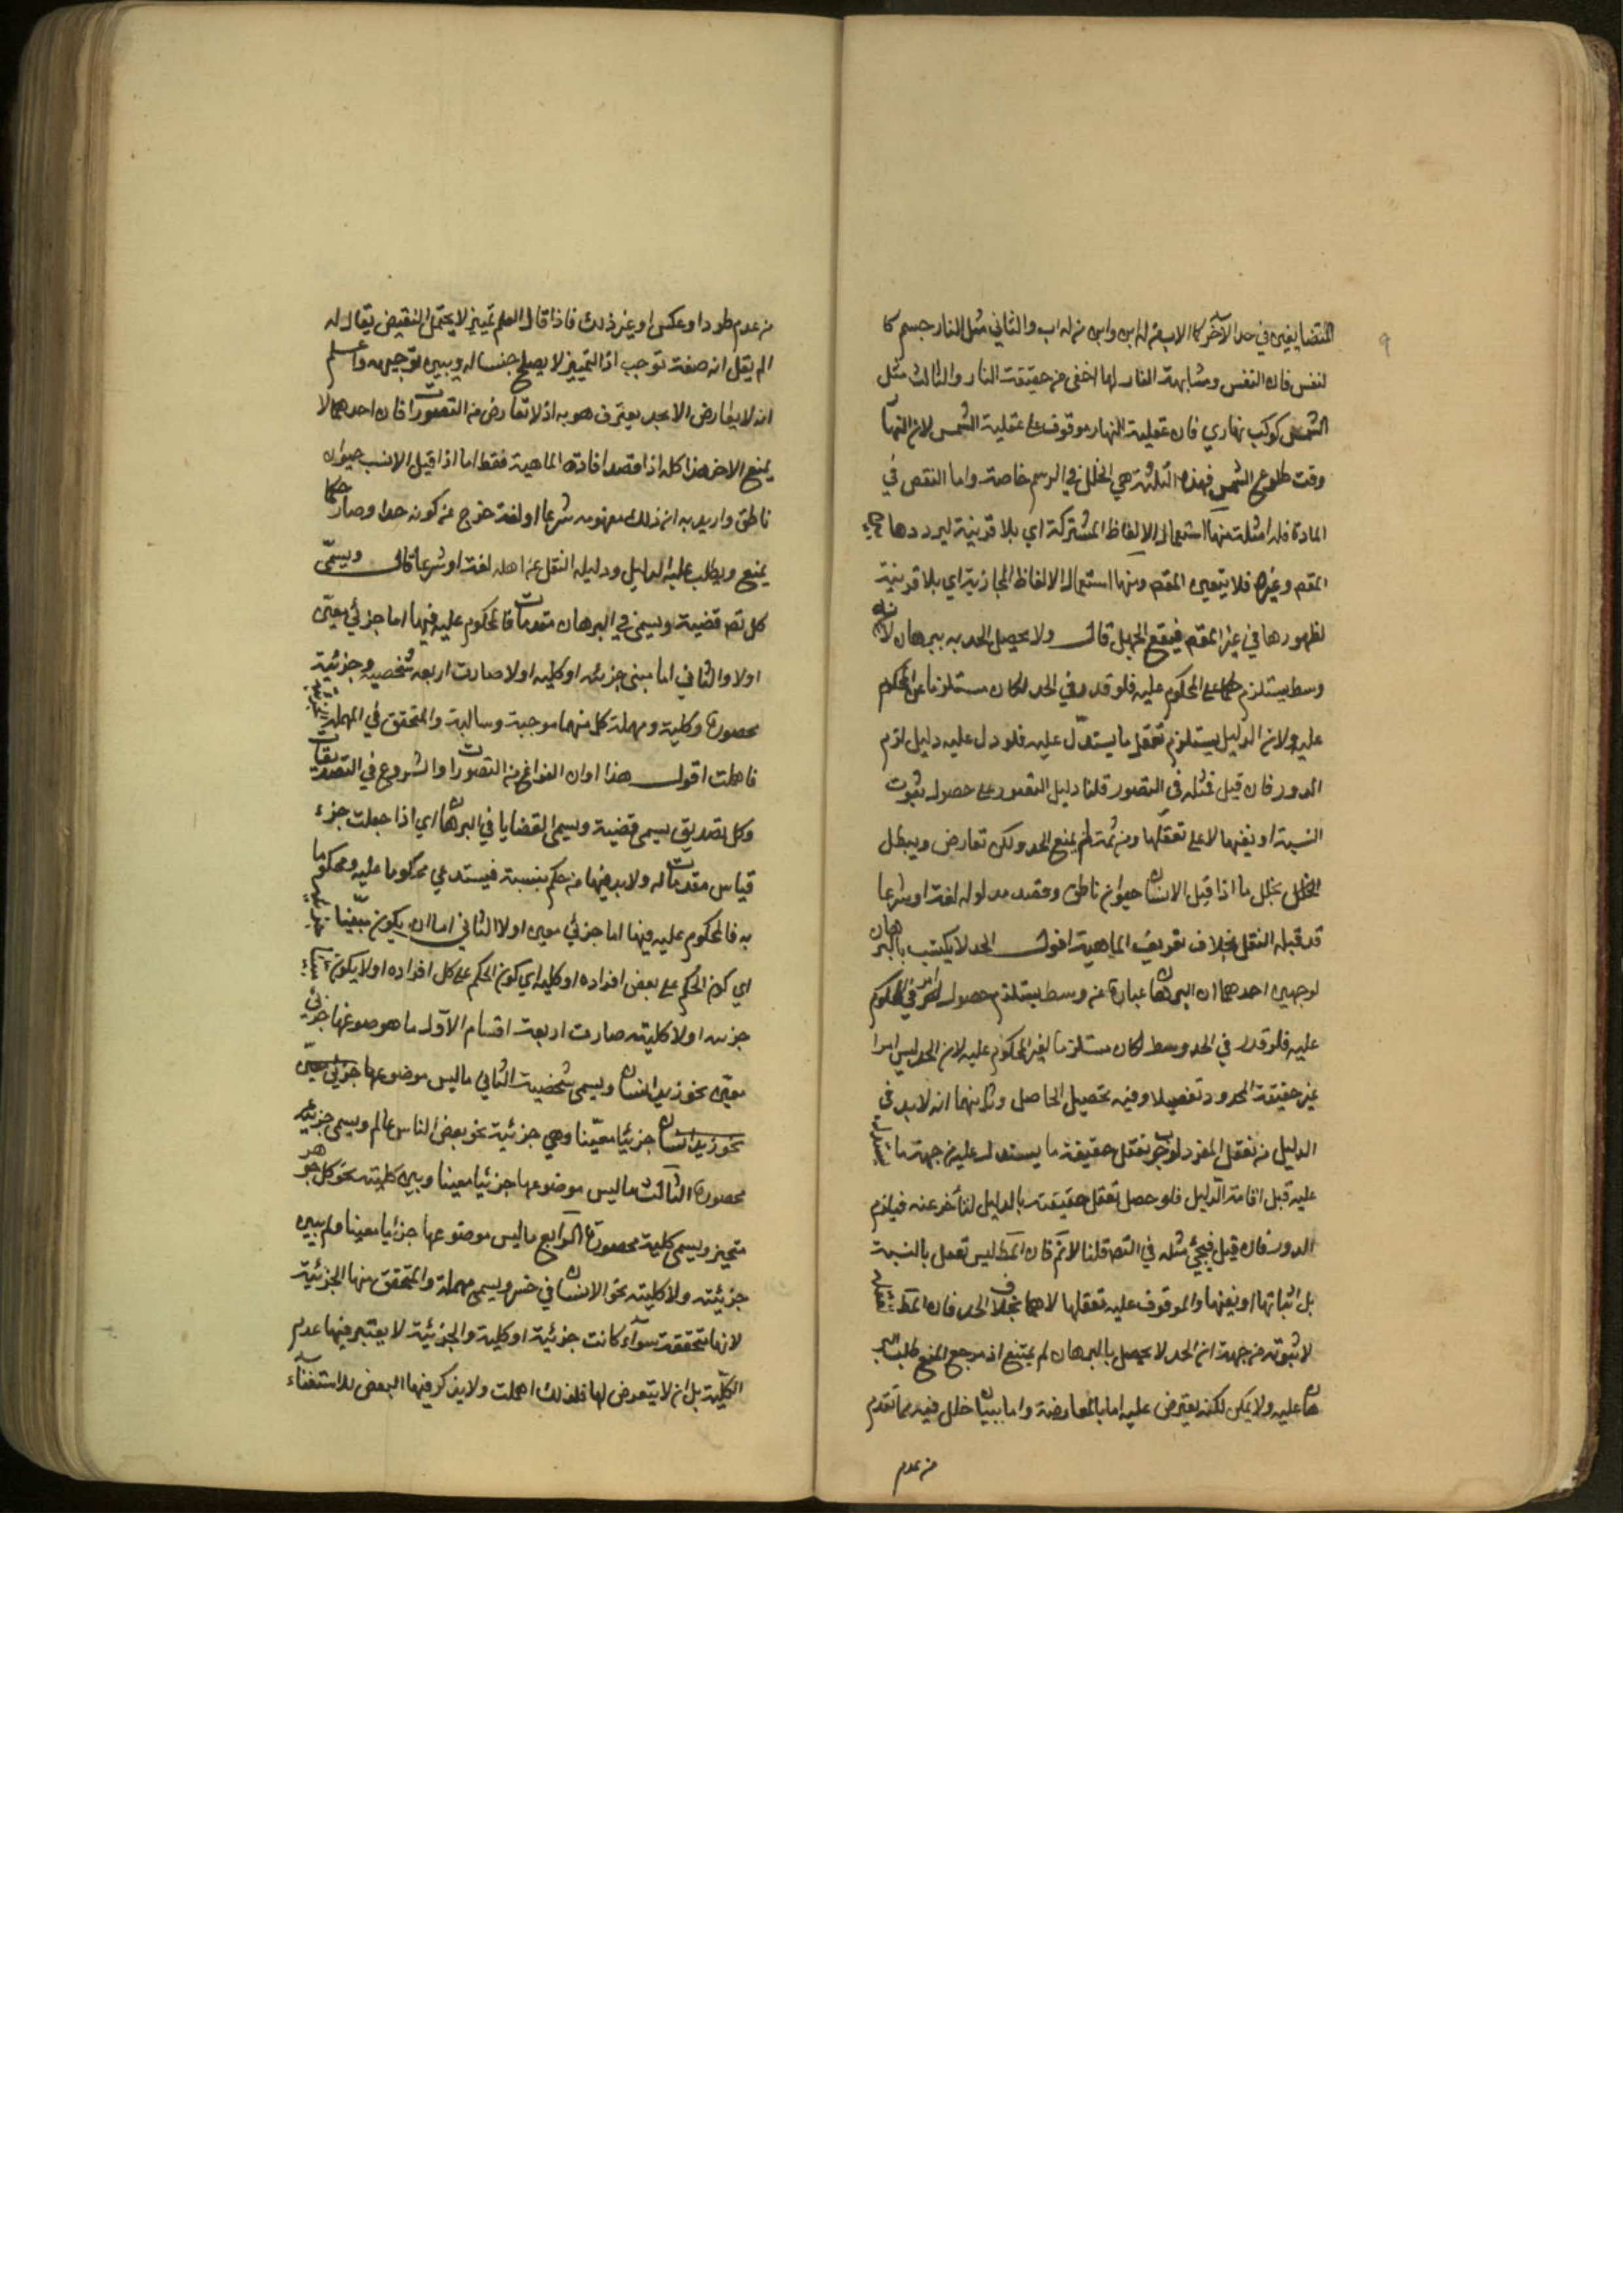 المتضايفين في حد الآخر كالاب من له ابن وابن من له اب والثاني مثل النار جسم كا
لنفس فان النفس ومشابهة النار لها اخفى من حقيقة النار والثالث مثل
الشمس كوكب نهاري فان عقلية النهار موقوف على عقلية الشمس لان النها
وقت طلوع الشمس فهذه الثلثة هي الخلل في الرسم خاصة واما النقص في
المادة فله امثلة منها استعمال الالفاظ المشتركة اي بلا قرينة ليرددها
المقصـ وغيره فلا يتعين المقصـ ومنها استعمال الالفاظ المجازية اي بلا قرينة
لظهورها في غير المقصـ فيقع الجهل قال ولا يحصل الحد به ببرهان لانه
وسط يستلزم حكما على المحكوم عليه فلو قدر في الحد لكان مستلزما عين المحكوم
عليه ولان الدليل يستلزم تعقل ما يستدل عليه فلو دل عليه دليل لزم
الدور فان قيل فمثله في التصور قلنا دليل التصور على حصول ثبوت
النسبة او نفيها لا على تعقلها ومن ثمة لم يمنع الحد ولكن تعارض ويبطل
الخلل بخلل ما اذا قيل الانسان حيوان ناطق وقصد مدلوله لغة او شرعا
قد قبله النقل بخلاف تعريف الماهية اقول الحد لا يكتسب بالبرهان
لوجهين احدهما ان البرهان عبارة عن وسط يستلزم حصول امر في المحكوم
عليه فلو قدر في الحد وسط لكان مستلزما لغير المحكوم عليه لان الحد ليس امرا
غير حقيقة المحدود تفصيلا وفيه تحصيل الحاصل وثانيهما انه لا بد في
الدليل من تعقل المفرد لوجوب تعقل حقيقة ما يستدل عليه من جهة ما يستدل
عليه قبل اقامة الدليل فلو حصل تعقل حقيقته بالدليل لتأخر عنه فيلزم
الدور فان قيل فيجئ مثله في التصـ قلنا لا ثم فان المطـ ليس تعقل بالنسبة
بل اثباتها او نفيها والموقوف عليه تعقلها لا هما بخلاف الحد فان المطـ تعقله
لا ثبوته من جهة ان الحد لا يحصل بالبرهان لم يمتنع اذ مرجع المنع طلب البر
هان عليه ولا يمكن لكنه يعترض عليه اما بالمعارضة واما ببيان خلل فيه مما تقدم
من عدم
من عدم طردا وعكس او غير ذلك فاذا قال العلم تمييز لا يحتمل النقيض يقال له
الم يقل انه صفة توجب اذ التمييز لا يصلح جنسا له ويبين توجيهه واعلم
انه لا يعارض الا بحد يعترف هو به اذ لا تعارض من التصورات فان احدهما لا
يمنع الاخر هذا كله اذا قصد افادة الماهية فقط اما اذا قيل الانسـ حيوان
ناطق واريد به ان ذلك مفهومه شرعا او لغة خرج عن كونه حدا وصار حكما
يمنع ويطلب عليه الدليل ودليله النقل عن اهله لغة او شرعا قال ويسمى
كل تصـ قضية ويسمى في البرهان مقدمات فالمحكوم عليه فيها اما جزئي معين
اولا والثاني اما مبين جزئيته او كليته اولا صارت اربعه شخصيه وجزئية
محصورة وكلية ومهملة كل منها موجبة وسالبة والمتحقق في المهملة الجزئية
فاهملت اقول هذا اوان الفراغ من التصورات والشروع في التصديقات
وكل تصديق يسمى قضية ويسمى القضايا في البرهان اي اذا جعلت جزء
قياس مقدمات له ولا بد فيها من حكم بنسبة فيستدعي محكوما عليه ومحكوما
به فالمحكوم عليه فيها اما جزئي معين اولا الثاني اما ان يكون مبينا
اي كون الحكم على بعض افراده او كليته اي كون الحكم على كل افراده او لا يكون مبينا
جزئيته اولا كليته صارت اربعة اقسام الاول ما هو موضوعها جزئي
معين نحو زيد انسان ويسمى شخصية الثاني ما ليس موضوعها جزئي معين
نحو زيد انسان جزئيا معينا وهي جزئية نحو بعض الناس عالم ويسمى جزئية
محصورة الثالث ما ليس موضوعها جزئيا معينا وبين كليته نحو كل جوهر
متحيز ويسمى كلية محصورة الرابع ما ليس موضوعها جزئيا معينا ولم يبين
جزئيته ولا كليته نحو الانسان في خسر ويسمى مهملة والمتحقق منها الجزئية
لانها متحققة سواء كانت جزئية او كلية والجزئية لا يعتبر فيها عدم
الكلية بل ان لا يتعرض لها فلذلك اهملت ولا يذكر فيها البعض للاستغناء